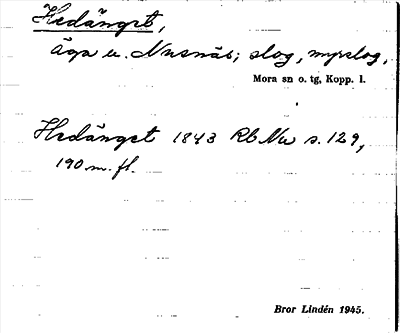 Hedänget,
äga u. Nusnäs; slog, myrslog,
Mora sn o. tg, Kopp. l.
Hedänget 1843 Rb Nu s. 129,
190 m. fl.
Bror Lindén 1945.